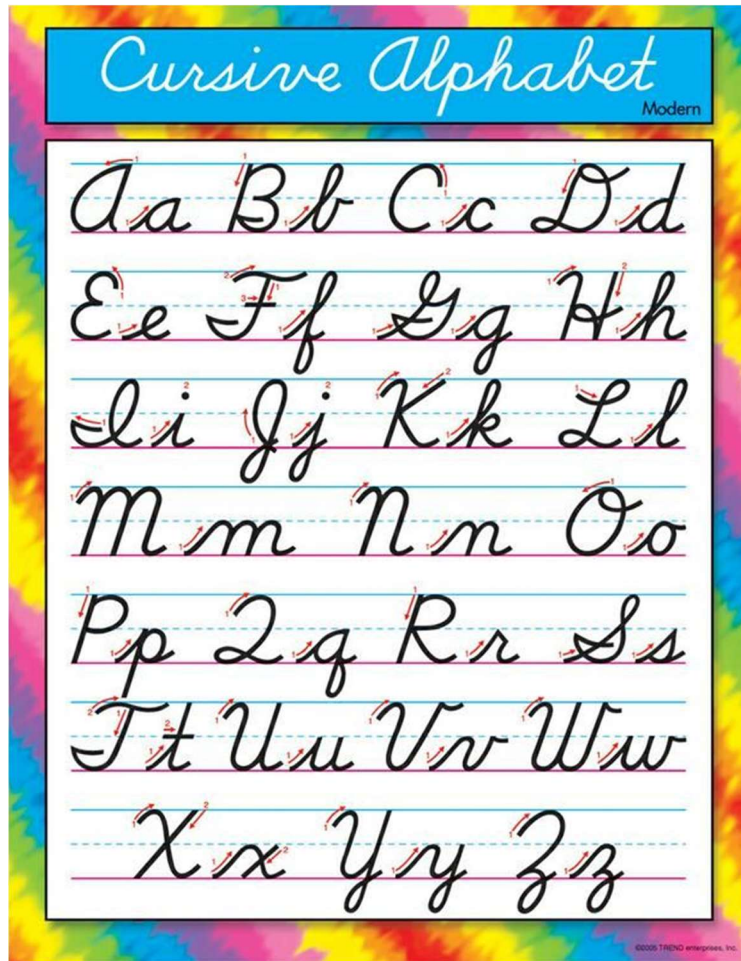 Cursive Alphabet
Modern
Aa Bb Cc Dd
Ee Ff Gg Hh
Ii Jj Kk Ll
Mm Nn Oo
Pp Qq Rr Ss
Tt Uu Vv Ww
Xx Yy Zz
©2005 TREND enterprises, Inc.